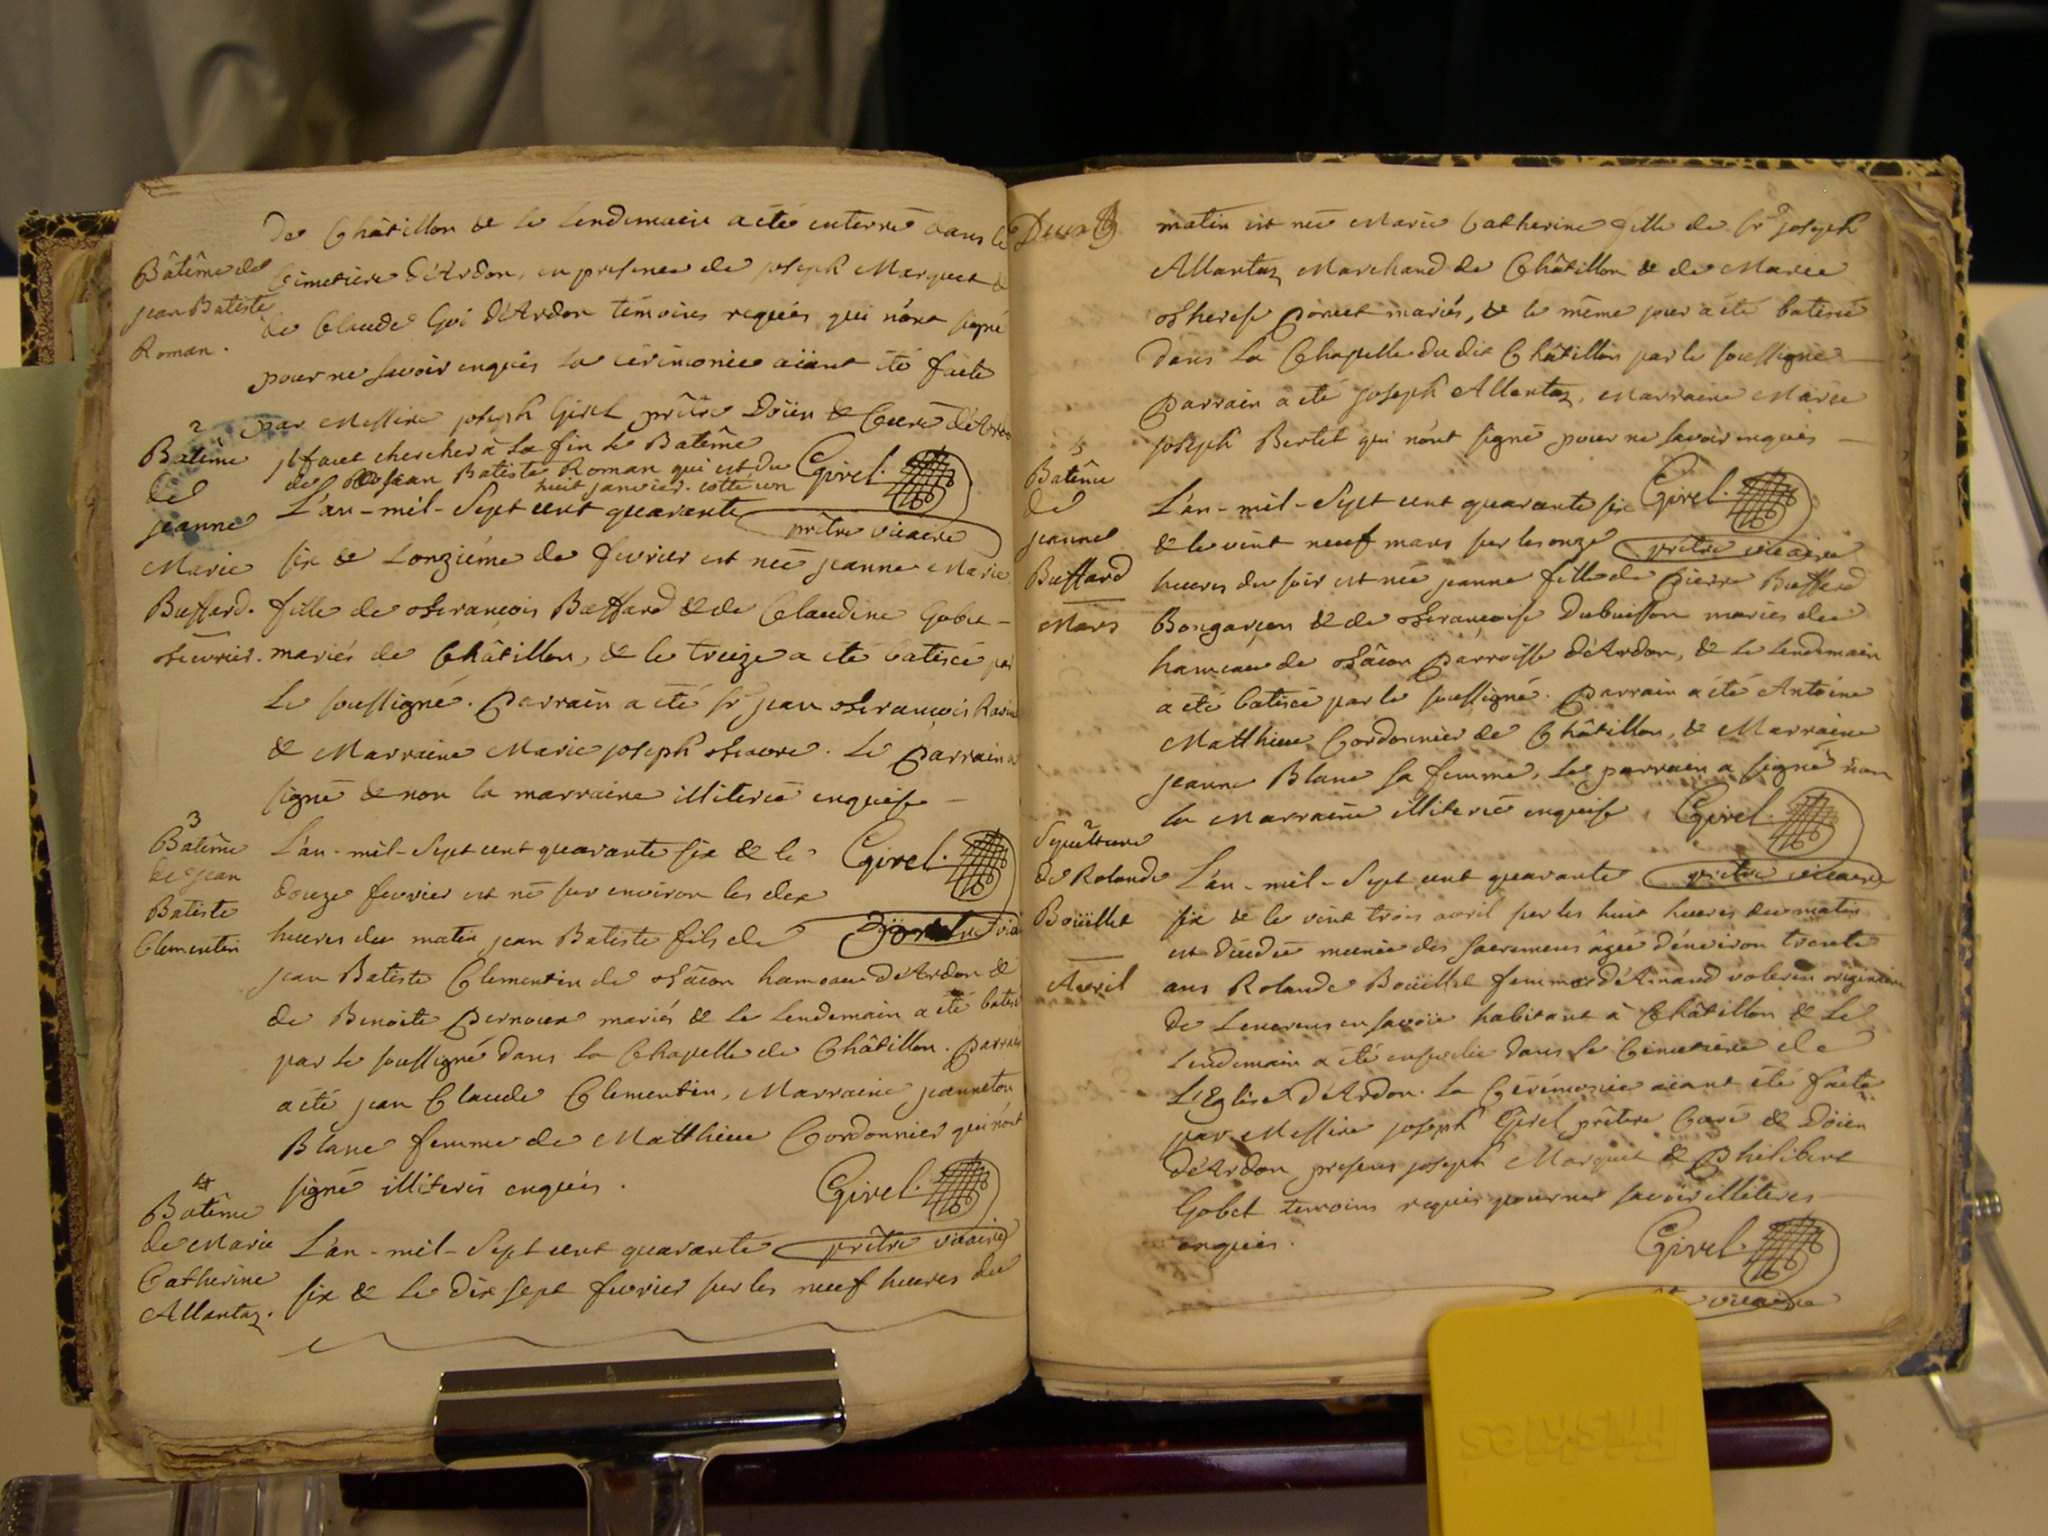 de Châtillon & le lendemain a été enterré dans le
Cimetiere d'Ardon, en presence de joseph Marquet &
de Claude Goi d'Ardon témoins requis qui n'ont signé
pour ne savoir enquis la cérimonie aïant été faite
par Messire joseph Girel prêtre Doïen & Curé d'Ardon
Bâtême de
jean Batiste
Roman.
il faut chercher à la fin le Batême
de jean Batiste Roman qui est du
huit janvier. cotté un
Girel.
prêtre vicaire
2
Batême
de
jeanne
Marie
Buffard.
fevrier.
L'an-mil-Sept cent quarante
six & Lonziéme de fevrier est née jeanne Marie
fille de francois Buffard & de Claudine Gobet
mariés de Châtillon, & le treize a été batisée par
Le soussigné. Parrain a été sr jean francois
& Marraine Marie joseph favre. Le Parrain a
signé & non la marraine illiterée enquise
3
Batême
de jean
Batiste
Clementin
L'an-mil-Sept cent quarante six & le
douze fevrier est né sur environ les dex
heures du matin jean Batiste fils de
jean Batiste Clementin de hameau d'Ardon &
de Benoite Pernoux mariés & le Lendemain a été batisé
par le soussigné dans la Chapelle de Châtillon. Parrain
a été jean Claude Clementin, Marraine jeanneton
Blanc femme de Matthieu Cordonnier qui n'ont
signé illiterés enquis.
Girel.
Girel.
prêtre vicaire
4
Batême
de Marie
Catherine
Allantaz.
L'an-mil-Sept cent quarante
six & le dix sept fevrier sur les neuf heures du
Deux
matin est née Marie Catherine fille de Sr joseph
Allantaz Marchand de Châtillon & de Marie
Therese Poncet mariés, & le même jour a été batisée
dans la Chapelle du dit Châtillon par le soussigné
Parrain a été joseph Allantaz, Marraine Marie
joseph Bertet qui n'ont signé pour ne savoir enquis
Girel.
prêtre vicaire
5
Batême
de
jeanne
Buffard
Mars
L'an-mil-Sept cent quarante six
& le vint neuf mars sur les onze
heures du soir est née jeanne fille de Pierre Buffard
Bongarçon & de francoise Dubuisson mariés du
hameau de Parroisse d'Ardon, & le lendemain
a été batisée par le soussigné. Parrain a été Antoine
Matthieu Cordonnier de Châtillon, & Marraine
jeanne Blanc sa femme, Le parrain a signé non
la Marraine illiterée enquise
Girel.
prêtre vicaire
2
Sepulture
de Rolande
Boüillet
Avril
L'an-mil-Sept cent quarante
six & le vint trois avril sur les huit heures du matin
est decedée munie des sacremens âgée d'environ trente
ans Rolande Boüillet femme d'Amand originaire
de en savoïe habitant à Châtillon & Le
Lendemain a été ensevelie dans le Cimetiere de
L'Eglise d'Ardon. La Cérémonie aïant été faite
par Messire joseph Girel prêtre Curé & Doïen
d'Ardon presens joseph Marquet & Philibert
Gobet temoins requis pour ne savoir illiteres
enquis.
Girel.
vicaire